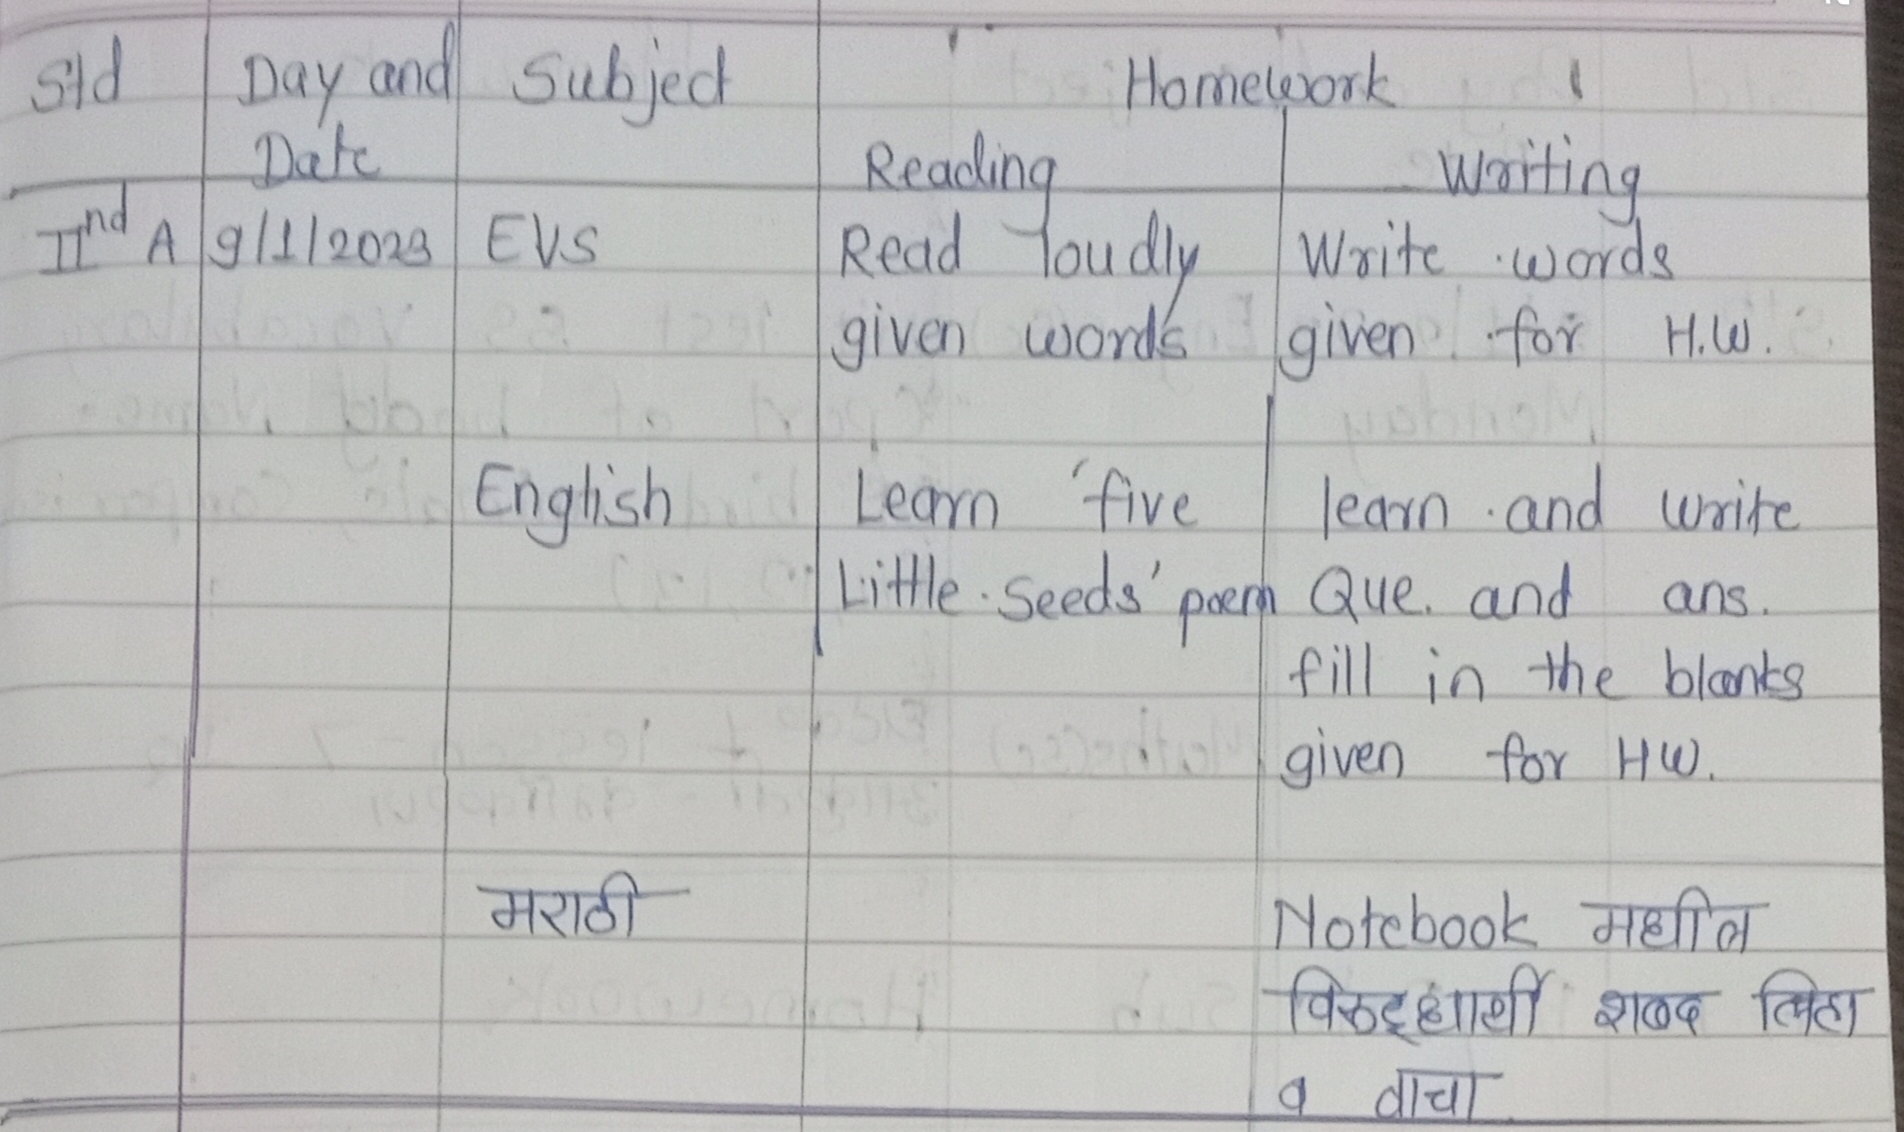 Std Day and Subject Homework
Date Reading Writing
IInd A 9/1/2023 EVS Read loudly Write words
given words given for H.W.
English Learn 'five learn and write
Little Seeds' poem Que. and ans.
fill in the blanks
given for HW.
मराठी Notebook मधील
विरुद्धार्थी शब्द लिहा
व वाचा